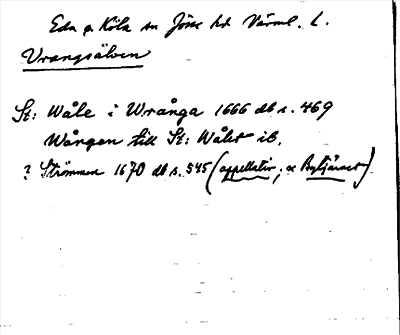 Eda o. Köla sn Jösse hd Värml. L.
Vrangsälven
St: Wåle i Wrånga 1666 db s. 469
Wången till St: Wålet ib.
? Strömmen 1670 db s. 545 (appellativ; o. Bytjärnet)